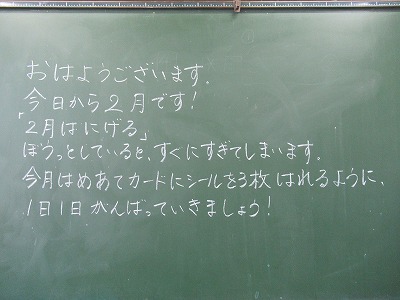 おはようございます。
今日から2月です!
「2月はにげる」
ぼうっとしていると、すぐにすぎてしまいます。
今月はめあてカードにシールを3枚はれるように、
1日1日がんばっていきましょう!